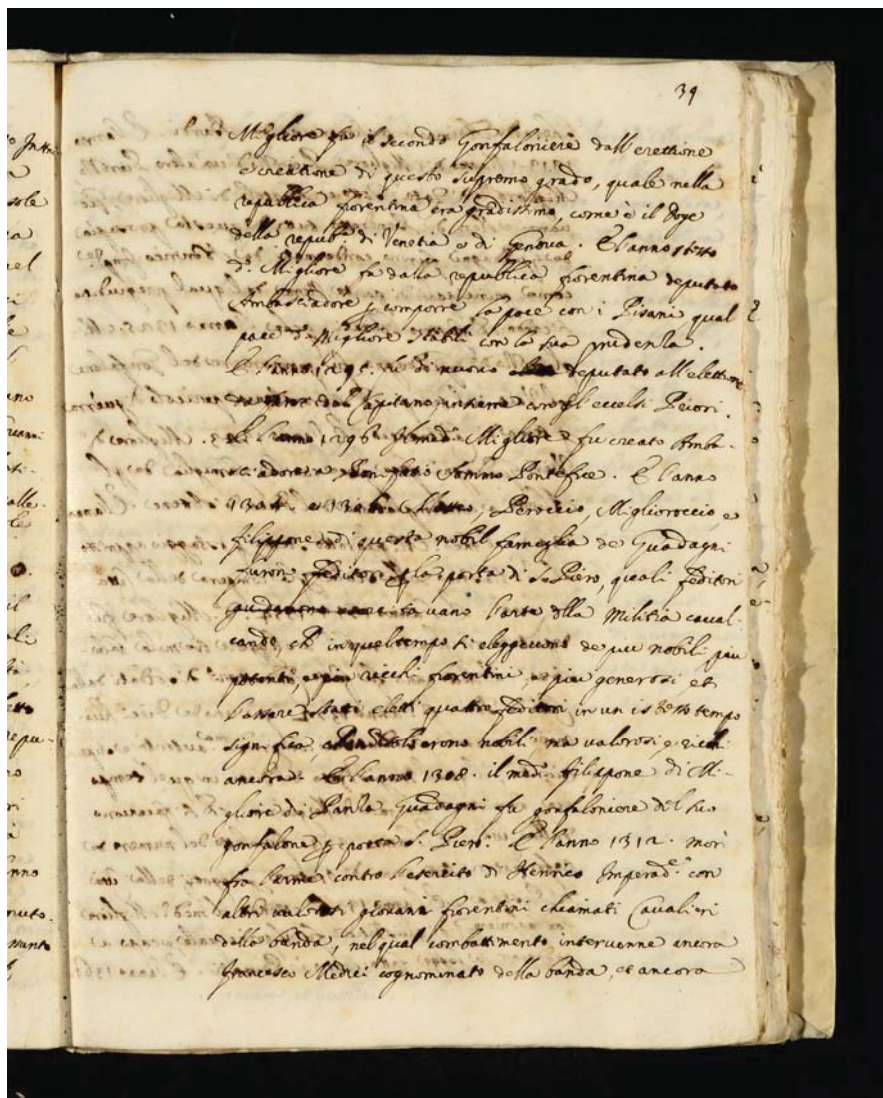 39
Migliore fu il secondo Gonfaloniere dall'erettione
e creattione di questo supremo grado, quale nella
republica fiorentina era gradissimo, come è il Doge
della repub.ª di Venetia e di Genova. E l'anno
d.º Migliore fu dalla republica fiorentina deputato
Ambasciadore p comporre la pace con i Pisani qual
pace d.º Migliore stabilì con la sua prudenza.
E l'anno 1295. fu di nuovo deputato all'elettione
del Capitano insieme con gl'eccelsi Priori.
E l'anno 1296 il med.º Migliore fu creato Amba-
sciadore a Bonifatio sommo Pontefice. E l'anno
e Matteo, Peroccio, Miglioroccio e
filippone di questa nobil fameglia de Guadagni
furon feditori p la porta di S. Piero, quali feditori
vano l'arte della Militia caval-
cando, et in quel tempo si eleggevono de piu nobili piu
potenti, e piu ricchi fiorentini, e piu generosi et
l'essere stati eletti quattro feditori in un istesso tempo
significa, erono nobili ma valorosi, e ricchi
ancora. E l'anno 1308. il med.º filippone di Mi-
gliore di Guadagni fu gonfaloniere del suo
gonfalone p porta S. Piero. E l'anno 1312. morì
fra l'armi contro l'esercito di Henrico Imperad.e con
altri valorosi giovani fiorentini chiamati Cavalieri
della banda, nel qual combattimento intervenne ancora
francesco Medici cognominato della banda, et ancora